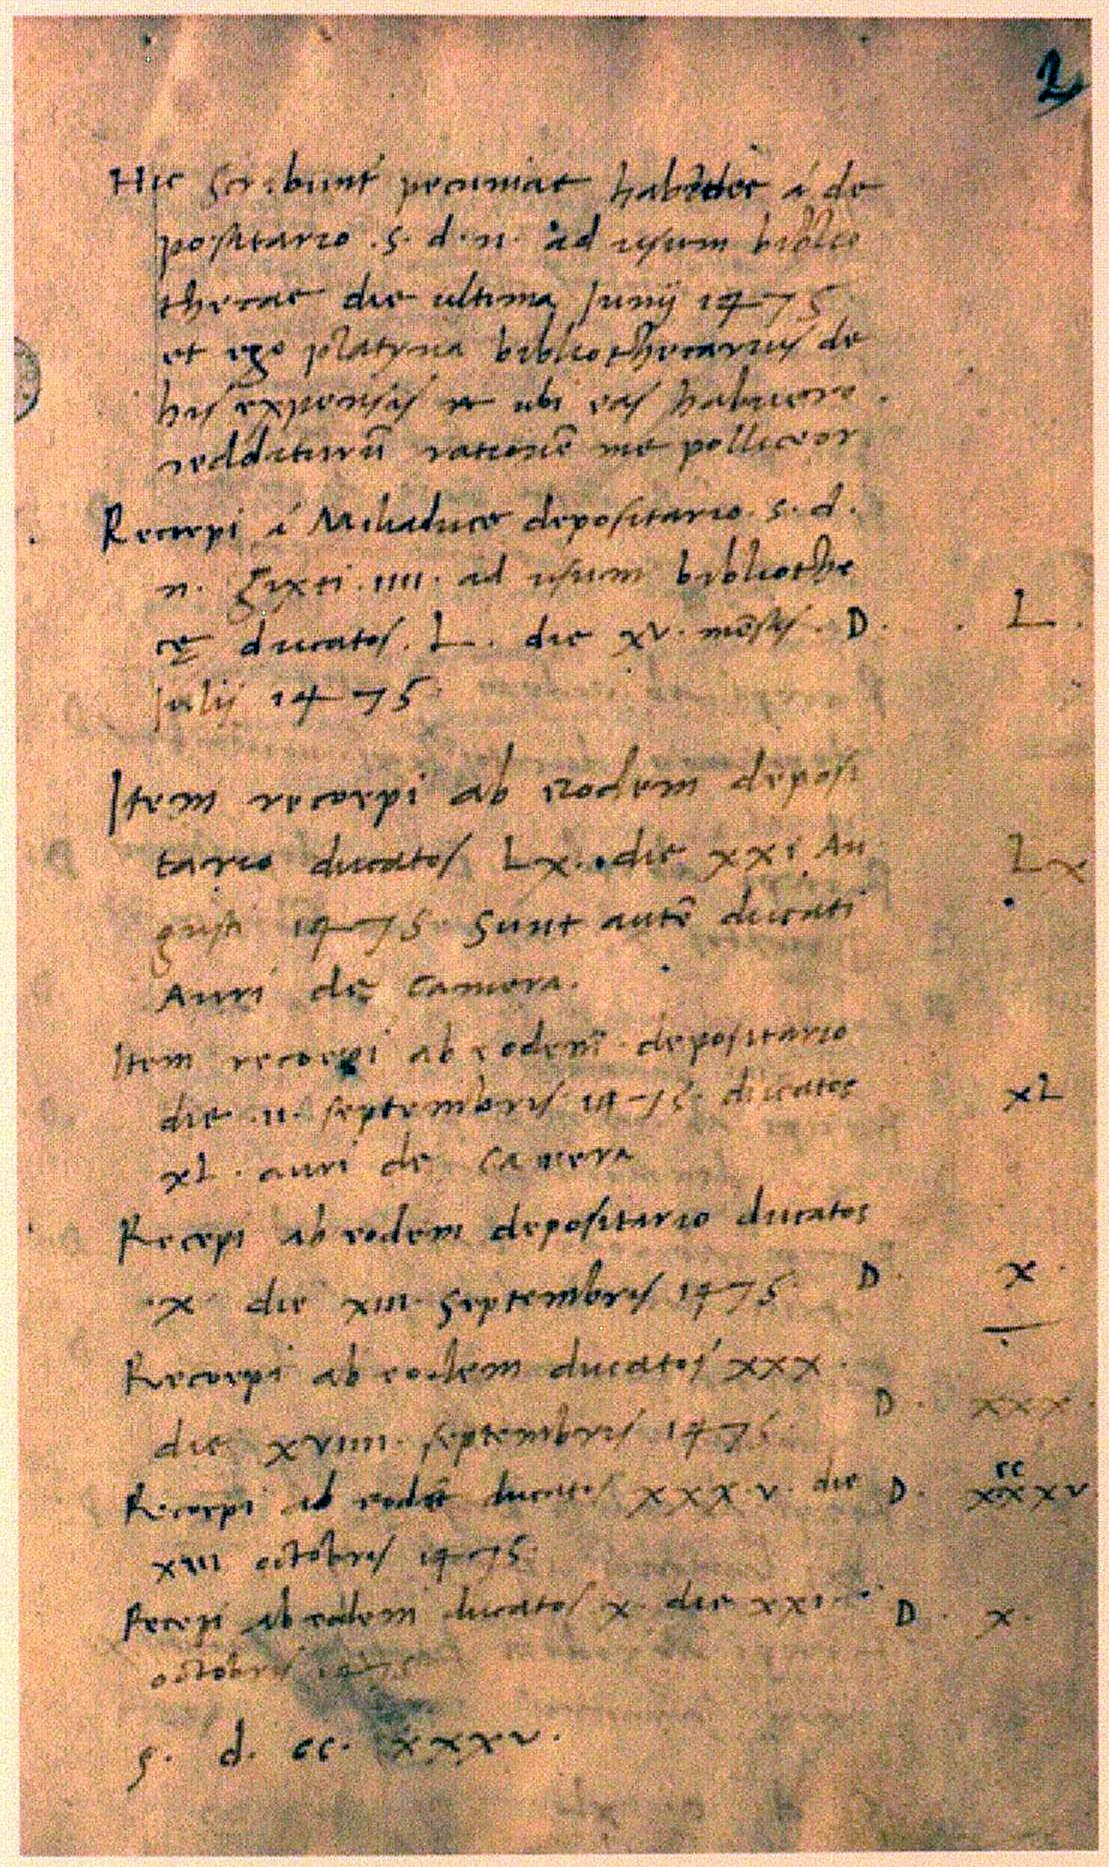 2
Hic scribunt pecuniae habitae á de
positario .s. d. n. ad usum biblio
thecae die ultima Junij 1475
et ego platyna bibliothecarius de
his expensis ubi eas habuero.
redditurū rationē me polliceor
Recoepi á Meliaduce depositario. s. d.
n. Sixti .IIII. ad usum bibliothe
cę ducatos. L. die xv. mēsis. D. . L.
Julij 1475.
Item recoepi ab eodem deposi
tario ducatos Lx. die xxi Au Lx
gusti 1475. Sunt autē ducati
Auri de camera.
Item recoepi ab eodem depositario
die .II. septembris 1475. ducatos xL
xL. auri de camera
Recepi ab eodem depositario ducatos
.x. die xIII. septembris 1475. D. x.
Recoepi ab eodem ducatos xxx.
die xvIIII. septembris 1475. D. xxx.
Recoepi ab eodē ducatos xxx.v. die D. xxxv
cc
xIII octobris 1475.
Recepi ab eodem ducatos x. die xxi. D. x.
octobris 1475
S. d. cc. xxxv.